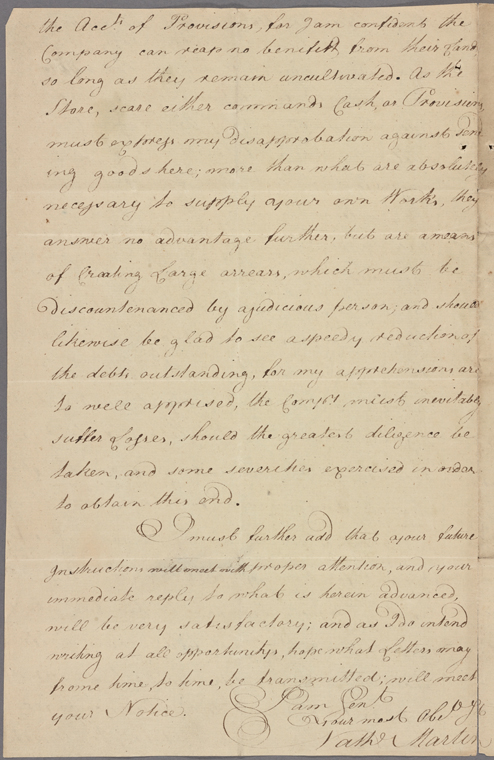 the Acc.ts of Provisions, for I am confident the
Company can reap no benefit from their Land
so long as they remain uncultivated. As the
Store, scarse either commands Cash, or Provisions
must express my disapprobation against send
ing goods here; more than what are absolutely
necessary to supply your own Works, they
answer no advantage further, but are a means
of Creating Large arrears, which must be
Discountenanced by a judicious person; and should
likewise be glad to see a speedy reduction of
the debts outstanding, for my apprehensions are
to well apprised, the Comp.y must inevitably
suffer Losses, should the greatest diligence be
taken, and some severities exercised in order
to obtain this end.
I must further add that your future
Instructions will meet with proper attention, and your
immediate reply to what is herein advanced,
will be very satisfactory; and as I do intend
writing at all opportunitys, hope what Letters may
frome time, to time, be transmitted; will meet
your Notice.
I am Gent
Your most Ob.t
Nath.l Martin